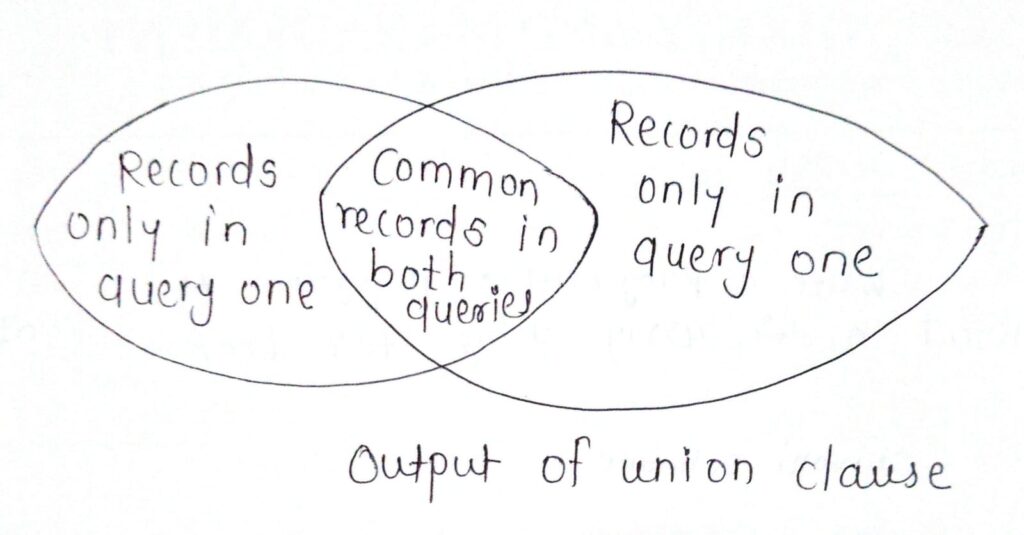 Records
only in
query one
Common
records in
both
queries
Records
only in
query one
Output of union clause